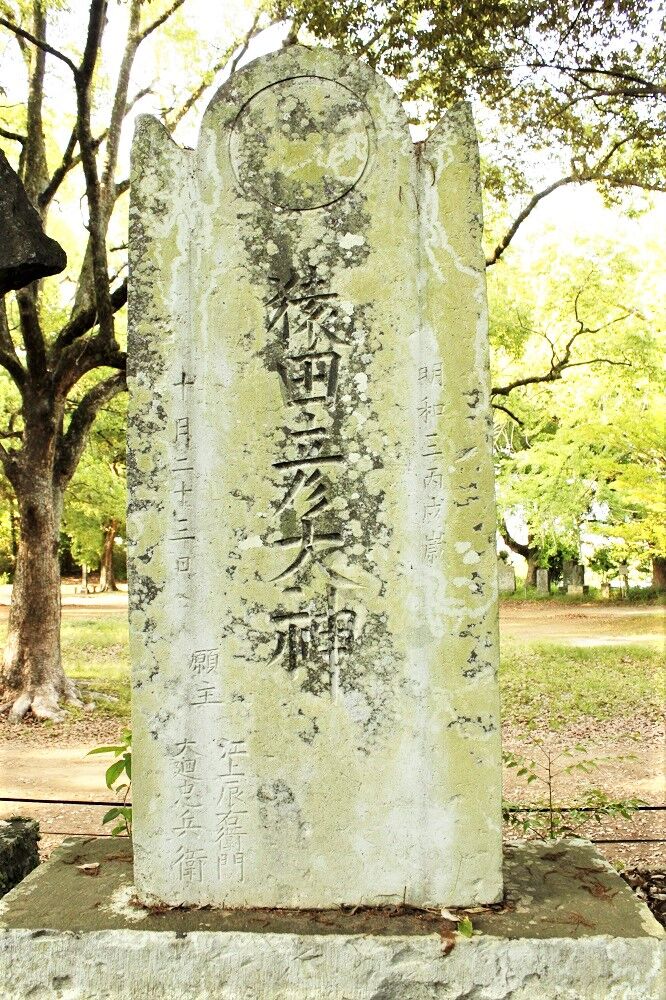 明和三丙戌歳
猿田彦大神
十月二十三日
願主
江上辰右衛門
大廻忠兵衛